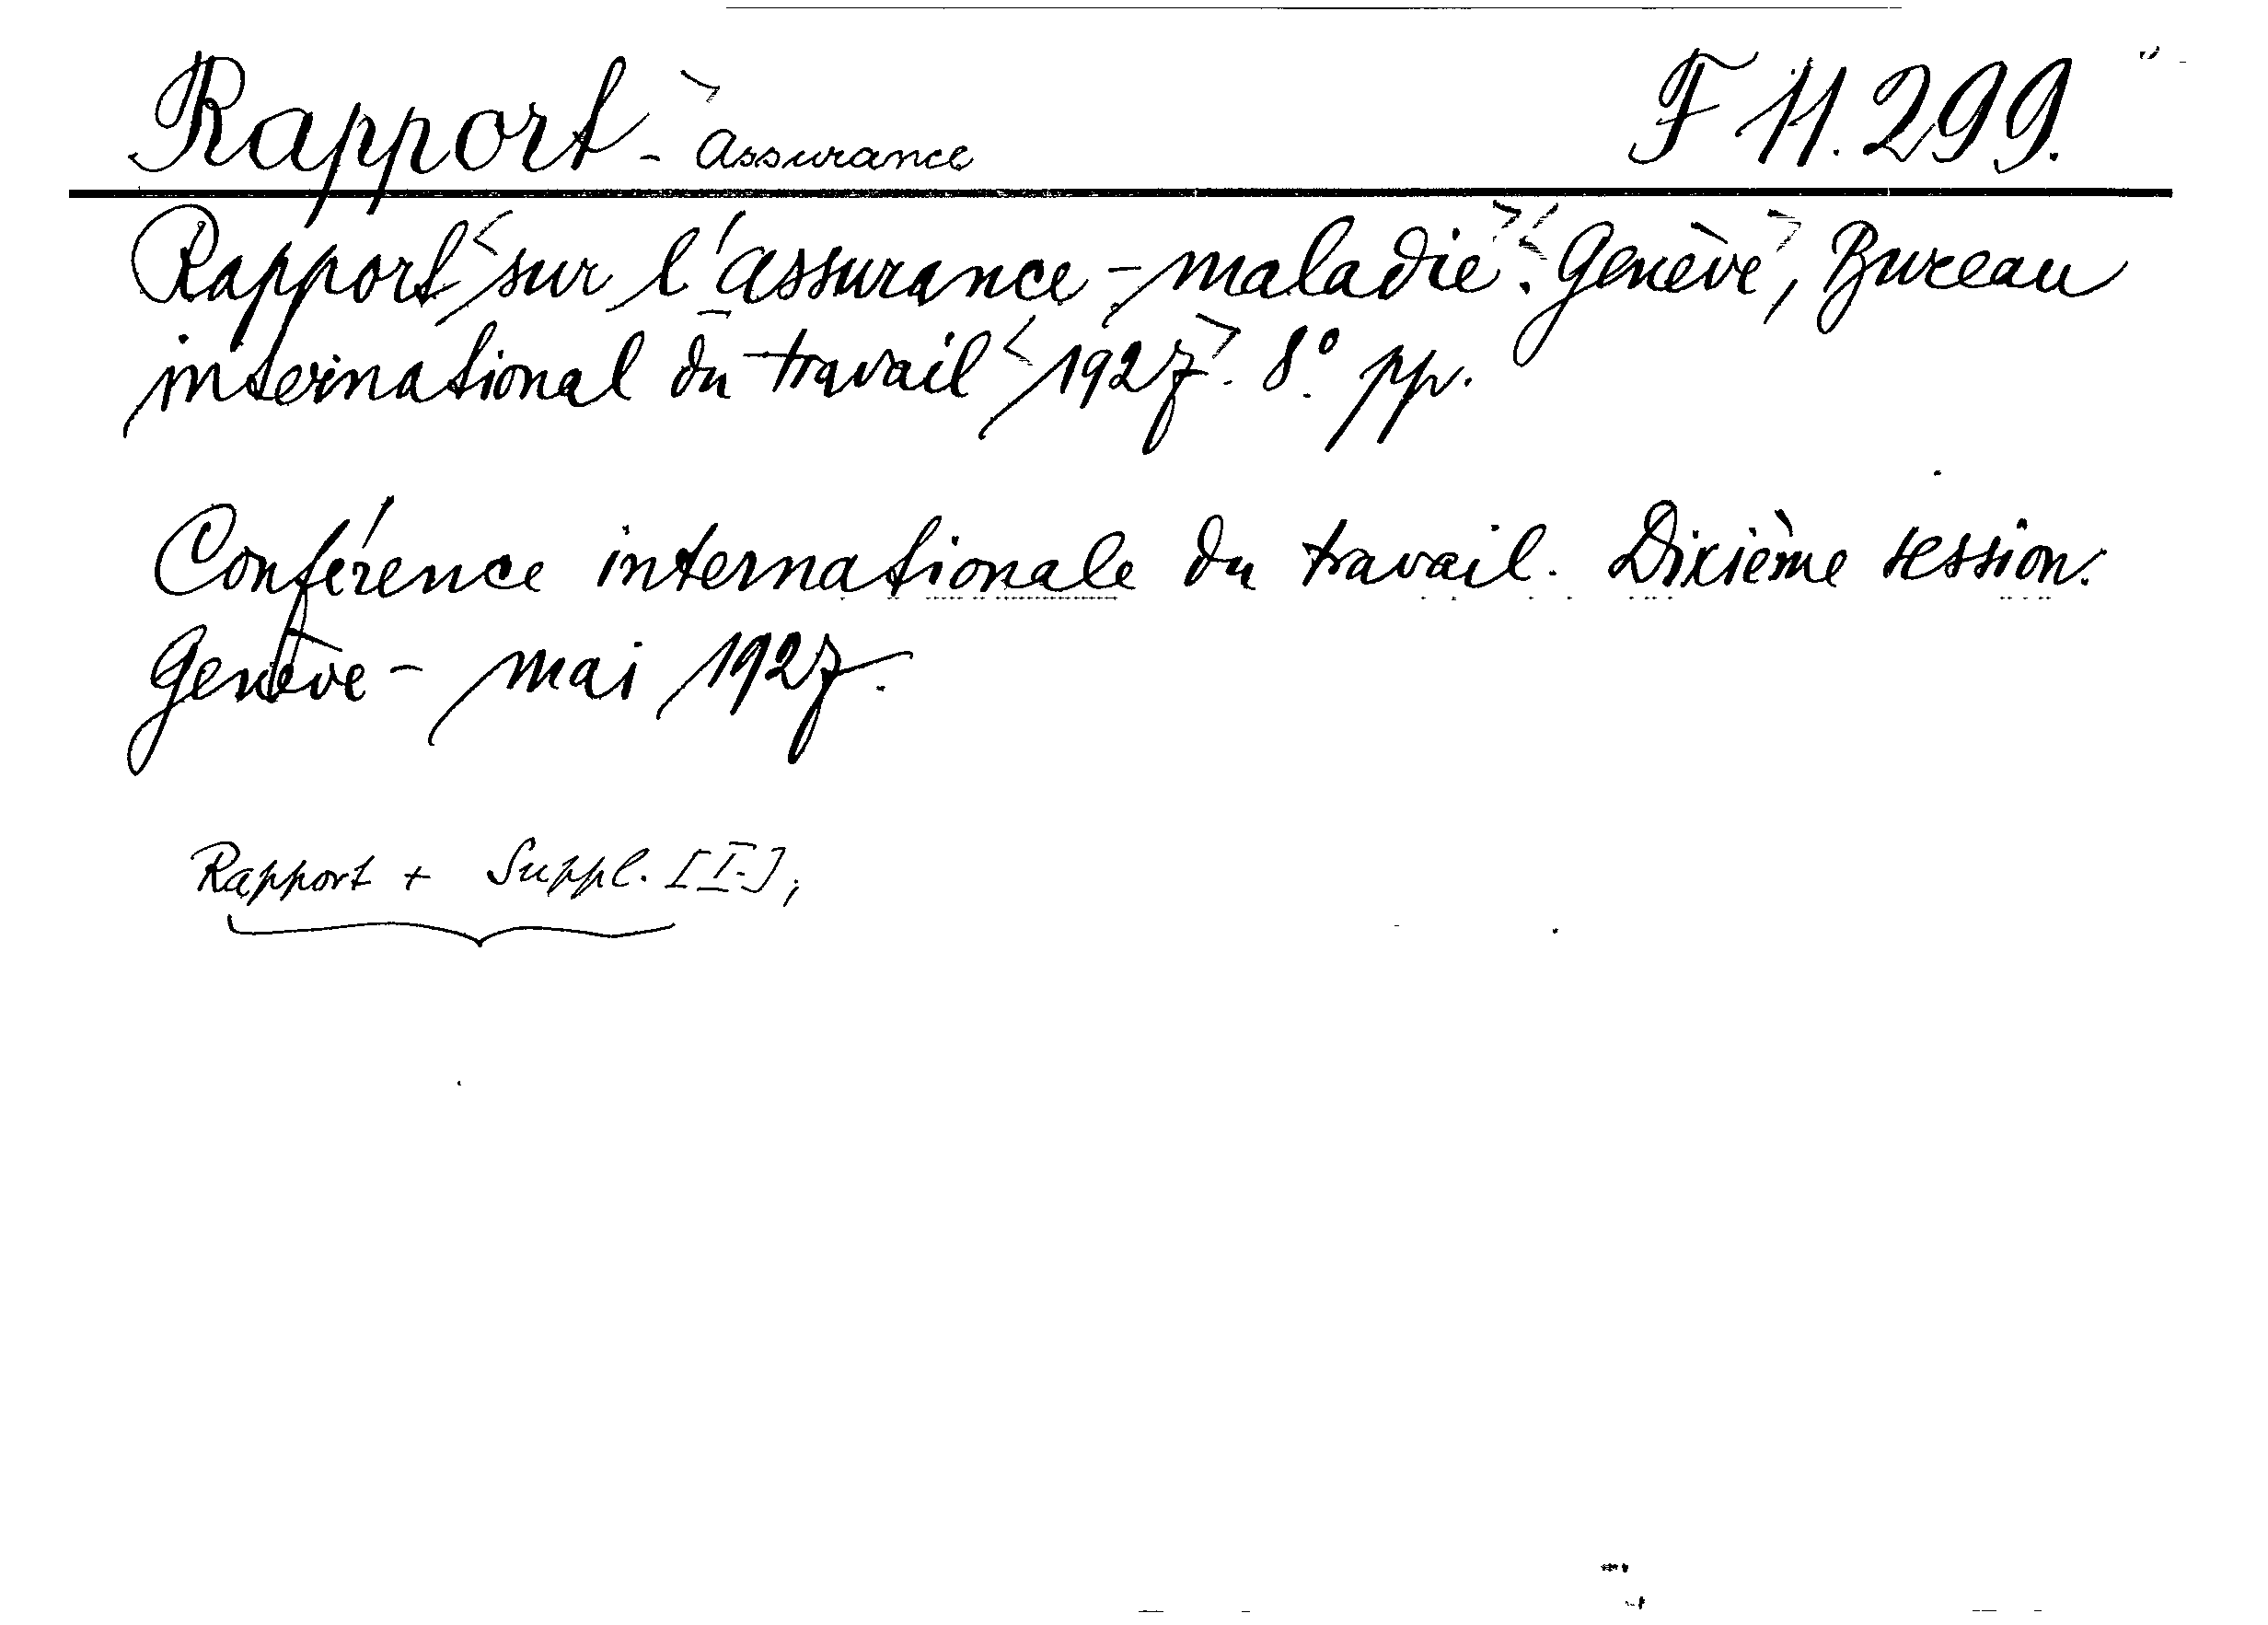 Rapport - Assurance F 11.299.
Rapport sur l'assurance-maladie. Genève, Bureau
international du travail 1927. 8° pp.
Conférence internationale du travail. Dixième session.
Genève - mai 1927.
Rapport + Suppl. [I-];